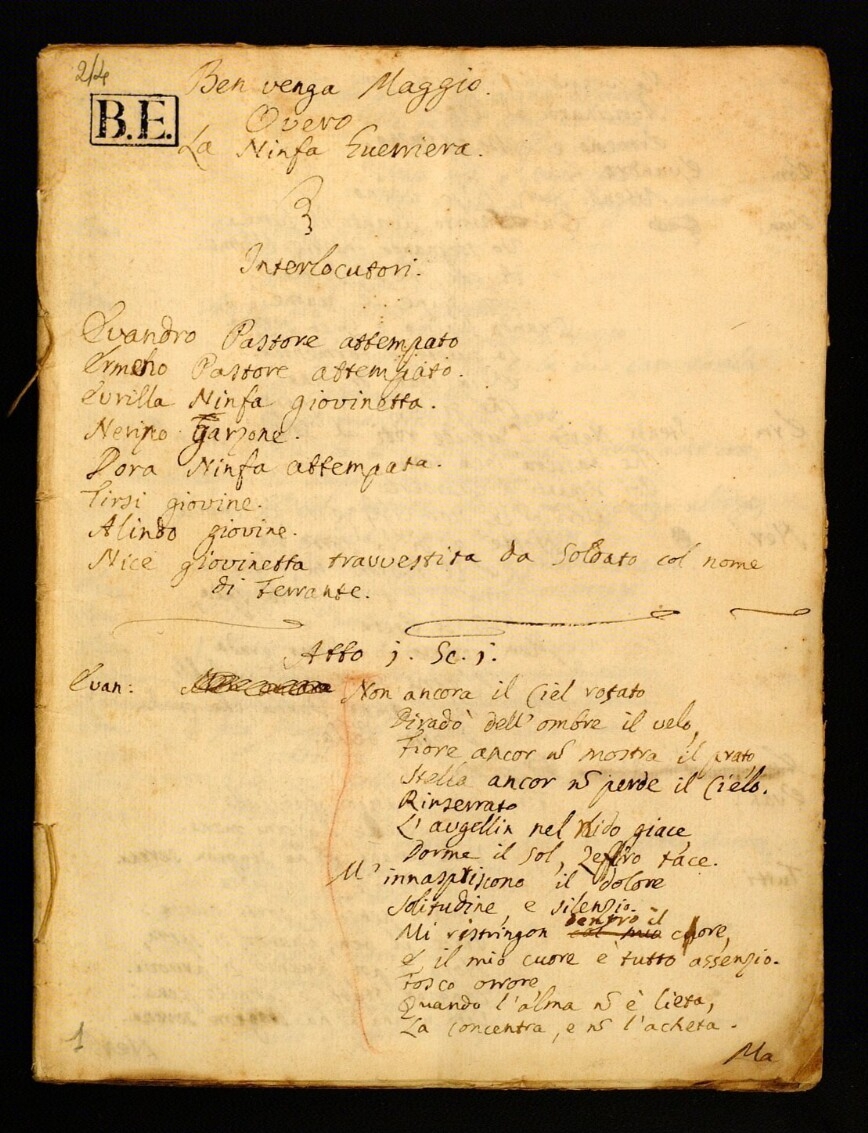 2/4
B.E.
Ben venga Maggio.
Overo
La Ninfa Guerriera.
Interlocutori.
Evandro Pastore attempato
Pastore attempato.
Eurilla Ninfa giovinetta.
Nerino Garzone.
Dora Ninfa attempata.
Tirsi giovine.
Alindo giovine.
Nice giovinetta travvestita da Soldato col nome
di Ferrante.
Atto j. Sc. j.
Evan: Non ancora il Ciel rosato
Diradò dell'ombre il velo,
Fiore ancor nõ mostra il prato,
Stella ancor nõ perde il Cielo.
Rinserrato
L'augellin nel Nido giace
Dorme il Sol, Zeffiro tace.
M'innaspriscono il dolore
Solitudine, e silenzio.
dentro il
Mi ristringon col mio cuore,
E il mio cuore è tutto assenzio.
Fosco orrore
Quando l'alma nõ è lieta,
La concentra, e nõ l'acheta.
Ma
1